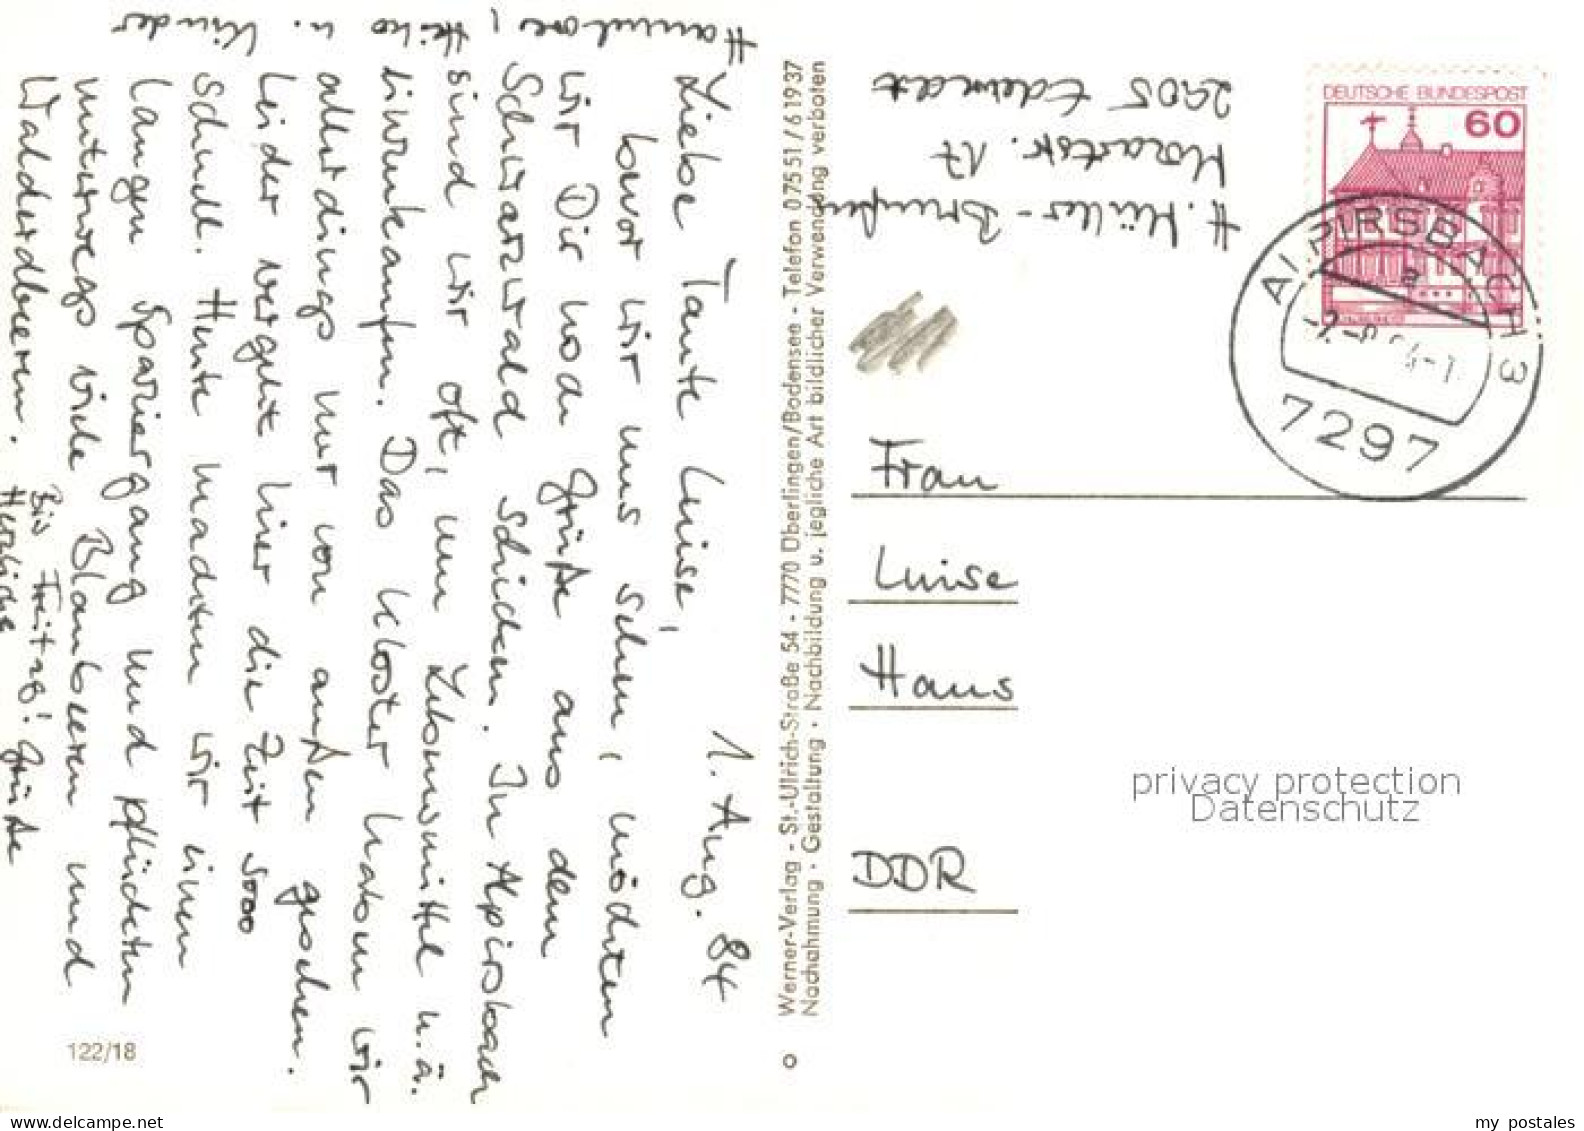 1. Aug. 84
Liebe Tante Luise,
bevor wir uns sehen, möchten
wir Dir noch Grüße aus dem
Schwarzwald schicken. In Alpirsbach
sind wir oft, um Lebensmittel u.ä.
einzukaufen. Das Kloster haben wir
allerdings nur von außen gesehen.
Leider vergeht hier die Zeit sooo
schnell. Heute machten wir einen
langen Spaziergang und pflückten
unterwegs viele Blaubeeren und
Walderdbeeren. Bis Freitag!
Herzliche Grüße
Hannelore, Heiko u. Kinder
122/18
Werner-Verlag - St.-Ulrich-Straße 54 - 7770 Überlingen/Bodensee - Telefon 07551/61937
Nachahmung · Gestaltung · Nachbildung u. jegliche Art bildlicher Verwendung verboten
H. Müller-
Mozartstr. 17
2905 Edewecht
DEUTSCHE BUNDESPOST
60
ALPIRSBACH 3
a
7297
Frau
Luise
Haus
DDR
privacy protection
Datenschutz
my postales
www.delcampe.net